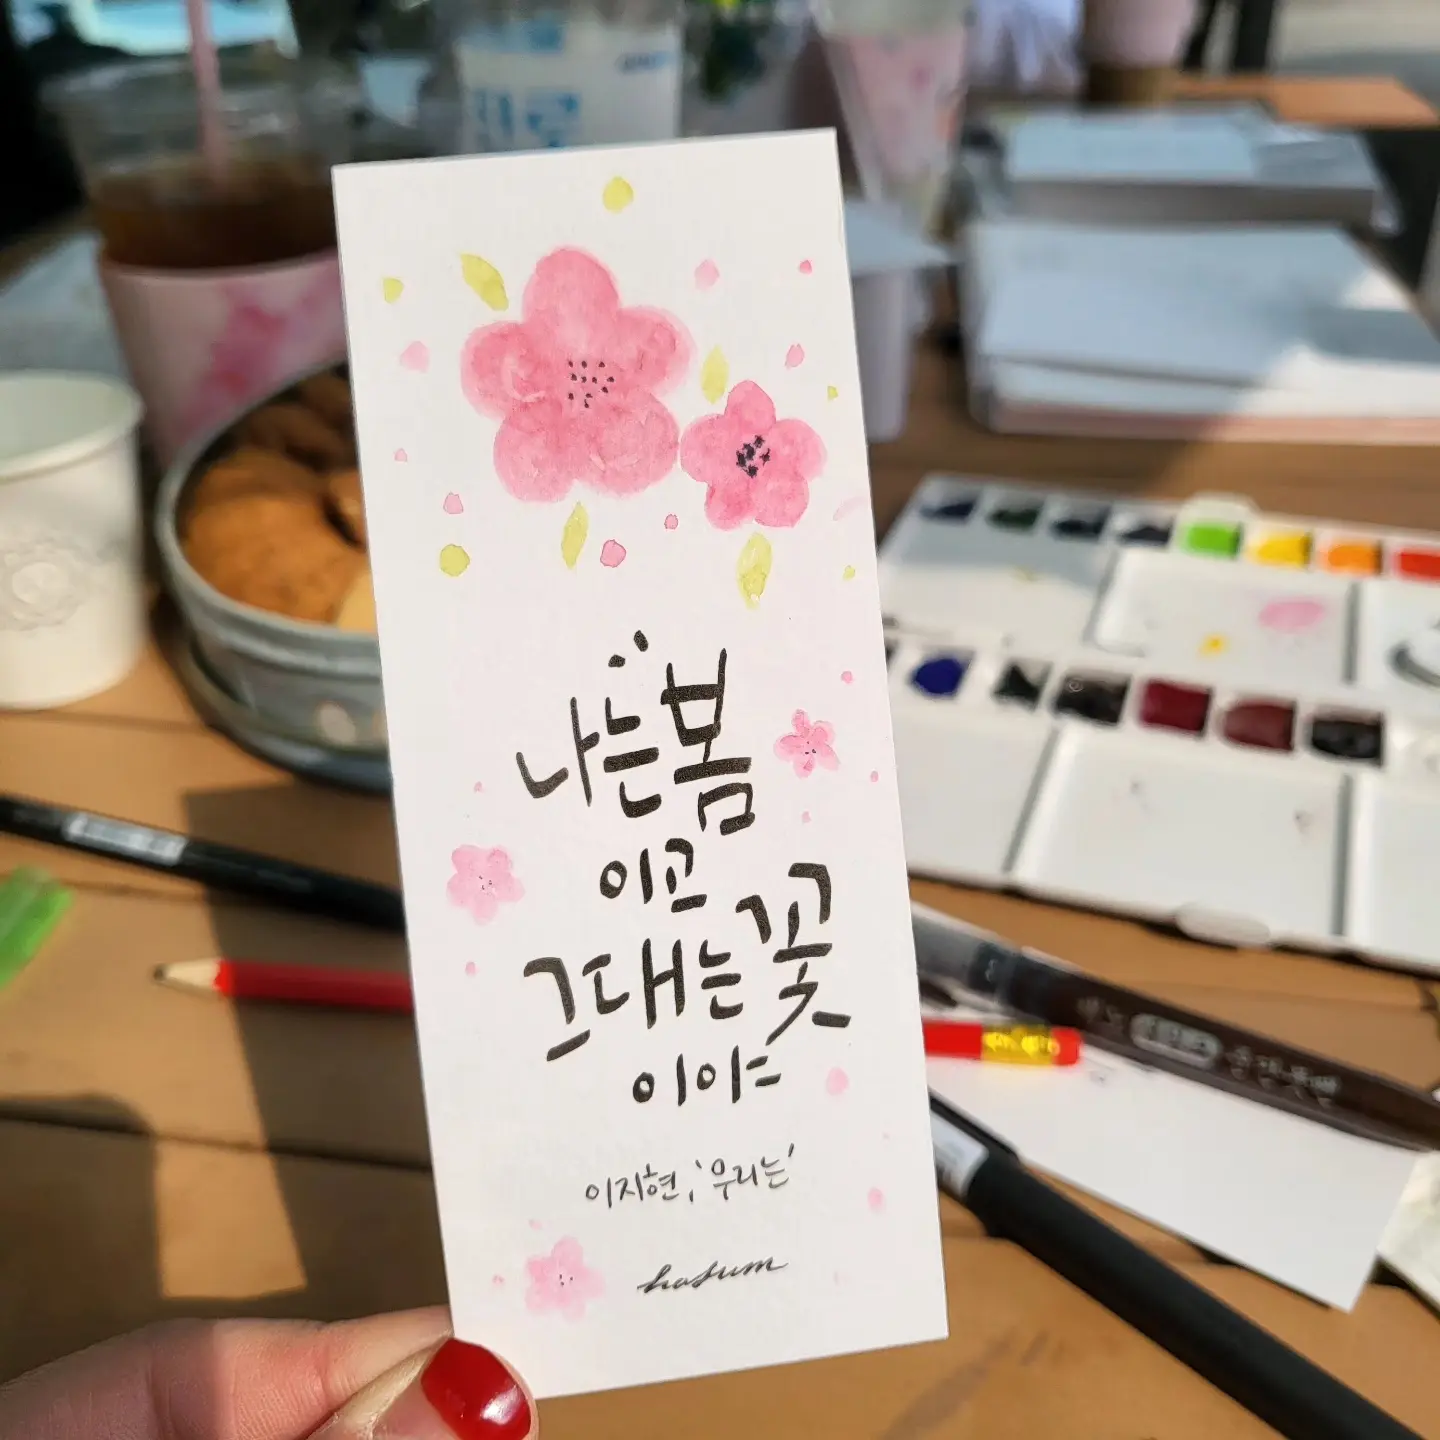 나는 봄
이고
그대는 꽃
이야
이지현, '우리는'
hasum